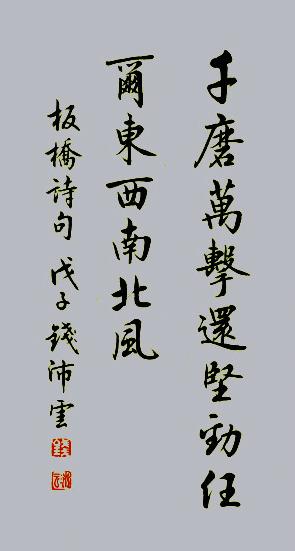 千磨萬擊還堅勁任
爾東西南北風
板橋詩句 戊子 錢沛雲